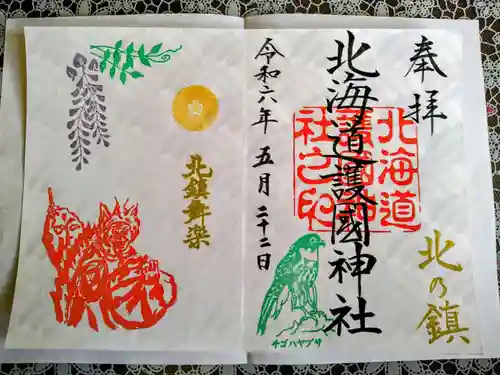 奉拝
北の鎮
北海道護國神社
北海道護國神社之印
令和六年 五月二十二日
チゴハヤブサ
北鎮舞楽